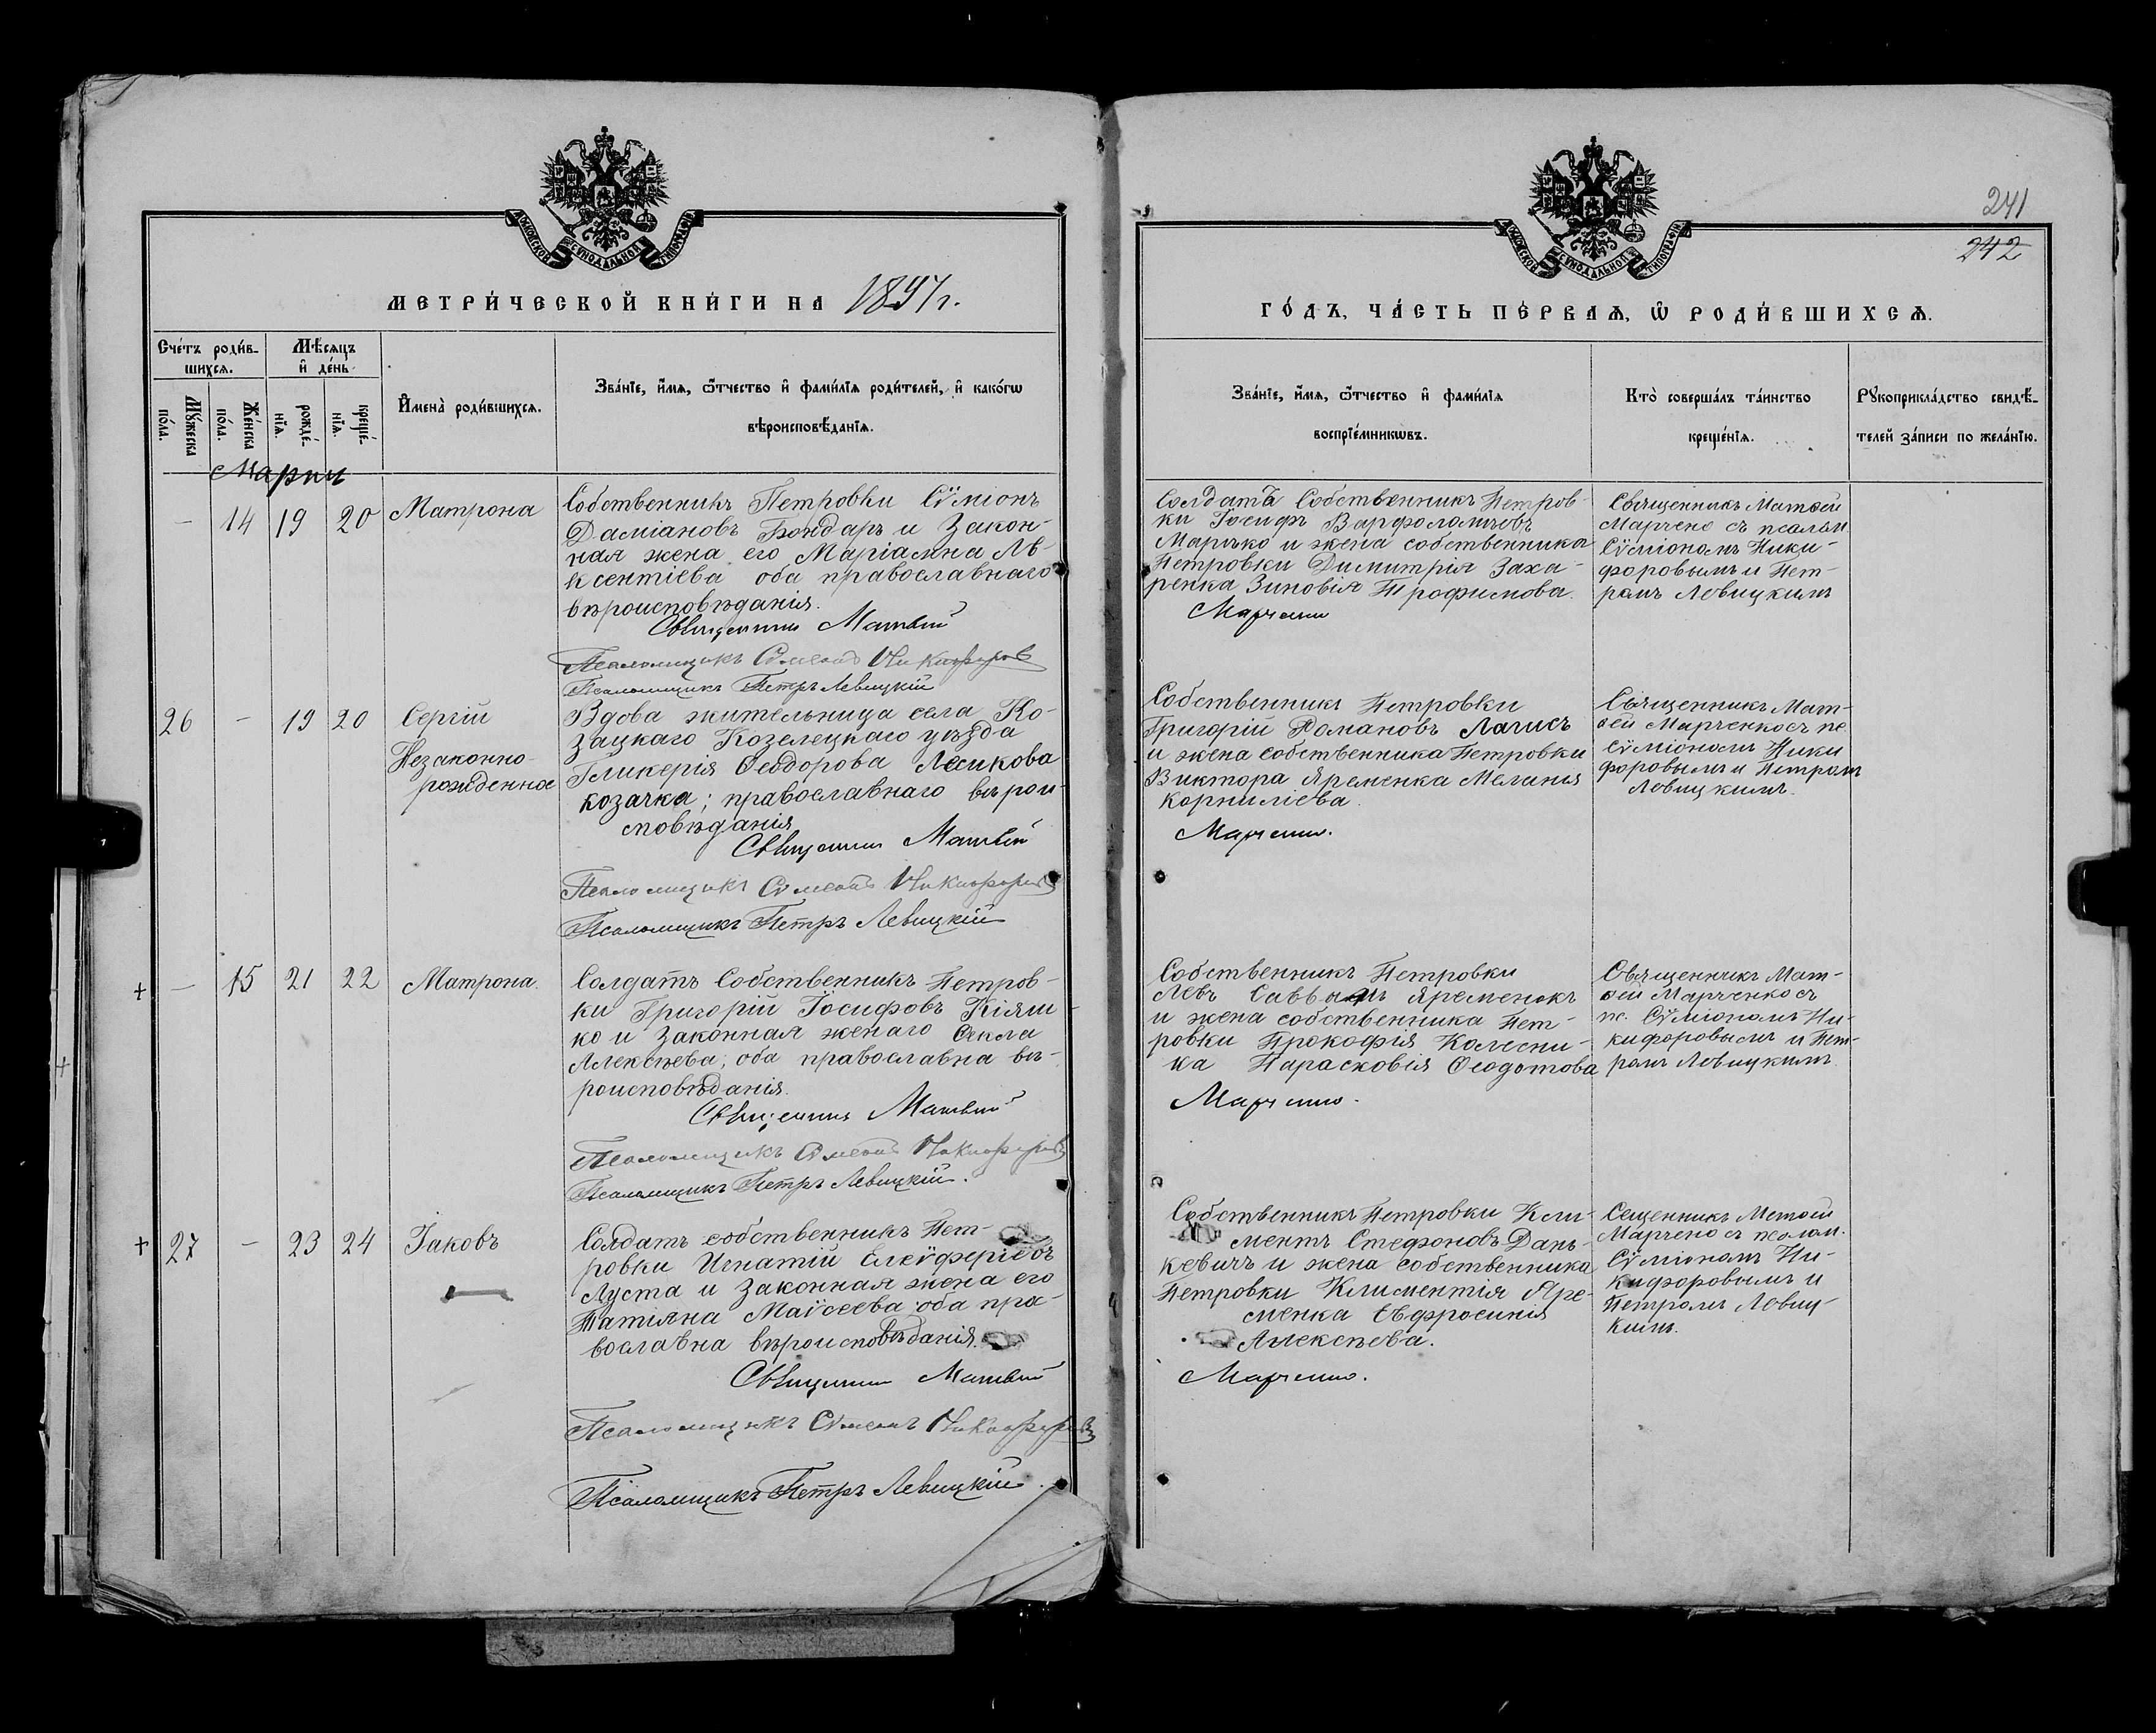 МОСКОВСКОЙ СѴНОДАЛЬНОЙ ТИПОГРАФІИ
МЕТРИ́ЧЕСКОЙ КНИ́ГИ НА 1897 г.
Сче́тъ роди́в-
шихсѧ.
Мѣ́сѧцъ
и҆ де́нь
Мꙋ́жеска
по́ла.
Же́нска
по́ла.
рожде́-
нїѧ.
креще́-
нїѧ.
И҆мена̀ роди́вшихсѧ.
Зва́нїе, и҆́мѧ, ѻ҆́тчество и҆ фами́лїѧ роди́телей, и҆ како́гѡ
вѣроисповѣ́данїѧ.
Мартъ
— 14 19 20
Матрона
Собственникъ Петровки Сѵміонъ
Даміановъ Бондаръ и Закон-
ная жена его Маріамна Ав-
ксентіева оба православнаго
вѣроисповѣданія.
Священникъ Матвѣй
Псаломщикъ Сѵмеонъ Никифоровъ
Псаломщикъ Петръ Левицкій
26 — 19 20
Сергій
Незаконно-
рожденное
Вдова жительница села Ко-
зацкаго Козелецкаго уѣзда
Гликерія Ѳеодорова Лесикова
козачка; православнаго вѣрои-
сповѣданія
Священникъ Матвѣй
Псаломщикъ Сѵмеонъ Никифоровъ
Псаломщикъ Петръ Левицкій
+ — 15 21 22
Матрона.
Солдатъ Собственникъ Петров-
ки Григорій Іосифовъ Кіяш-
ко и Законная жена го Ѳекла
Алексѣева, оба православна вѣ-
роисповѣданія.
Священникъ Матвѣй
Псаломщикъ Сѵмеонъ Никифоровъ
Псаломщикъ Петръ Левицкій.
+ 27 — 23 24
Іаковъ
Солдатъ собственникъ Пет-
ровки Игнатій Елеѵферіевъ
Луста и Законная жена его
Татіяна Маѵсеева оба пра-
вославна вѣроисповѣданія.
Священникъ Матвѣй
Псаломщикъ Сѵмеонъ Никифоровъ
Псаломщикъ Петръ Левицкій.
241
242
МОСКОВСКОЙ СѴНОДАЛЬНОЙ ТИПОГРАФІИ
ГО́ДЪ, ЧА́СТЬ ПЕ́РВАѦ, Ѡ҆ РОДИ́ВШИХСѦ.
Зва́нїе, и҆́мѧ, ѻ҆́тчество и҆ фами́лїѧ
воспрїе́мникѡвъ.
Кто̀ соверша́лъ та́инство
креще́нїѧ.
Рꙋкоприкла́дство свидѣ́-
телей за́писи по жела́нїю.
Солдатъ Собственникъ Петров-
ки Іосифъ Варфоломѣевъ
Марченко и жена собственника
Петровки Димитрія Заха-
ренка Зиновія Трофимова.
Марченко
Священникъ Матѳей
Марчено съ псалом
Сѵміономъ Ники-
форовымъ и Пет-
ромъ Левицкимъ
Собственникъ Петровки
Григорій Романовъ Лагисъ
и жена собственника Петровки
Виктора Яременка Меланія
Корниліева.
Марченко.
Священникъ Мат-
ѳей Марченко съ пс
Сѵміономъ Ники
форовымъ и Петромъ
Левицкимъ.
Собственникъ Петровки
Левъ Саввинъ Яременокъ
и жена собственника Пет-
ровки Прокофія Колесни-
ка Парасковія Ѳеодотова
Марченко.
Священникъ Мат-
ѳей Марченко съ
пс. Сѵміономъ Ни-
кифоровымъ и Пет-
ромъ Левицкимъ.
Собственникъ Петровки Кли-
ментъ Стефоновъ Дань-
кевичъ и жена собственника
Петровки Климентія Яре-
менка Евфросинія
Алексѣева.
Марченко.
Сященникъ Метѳей
Марчено съ псалом.
Сѵміономъ Ни-
кифоровымъ и
Петромъ Левиц-
кимъ.